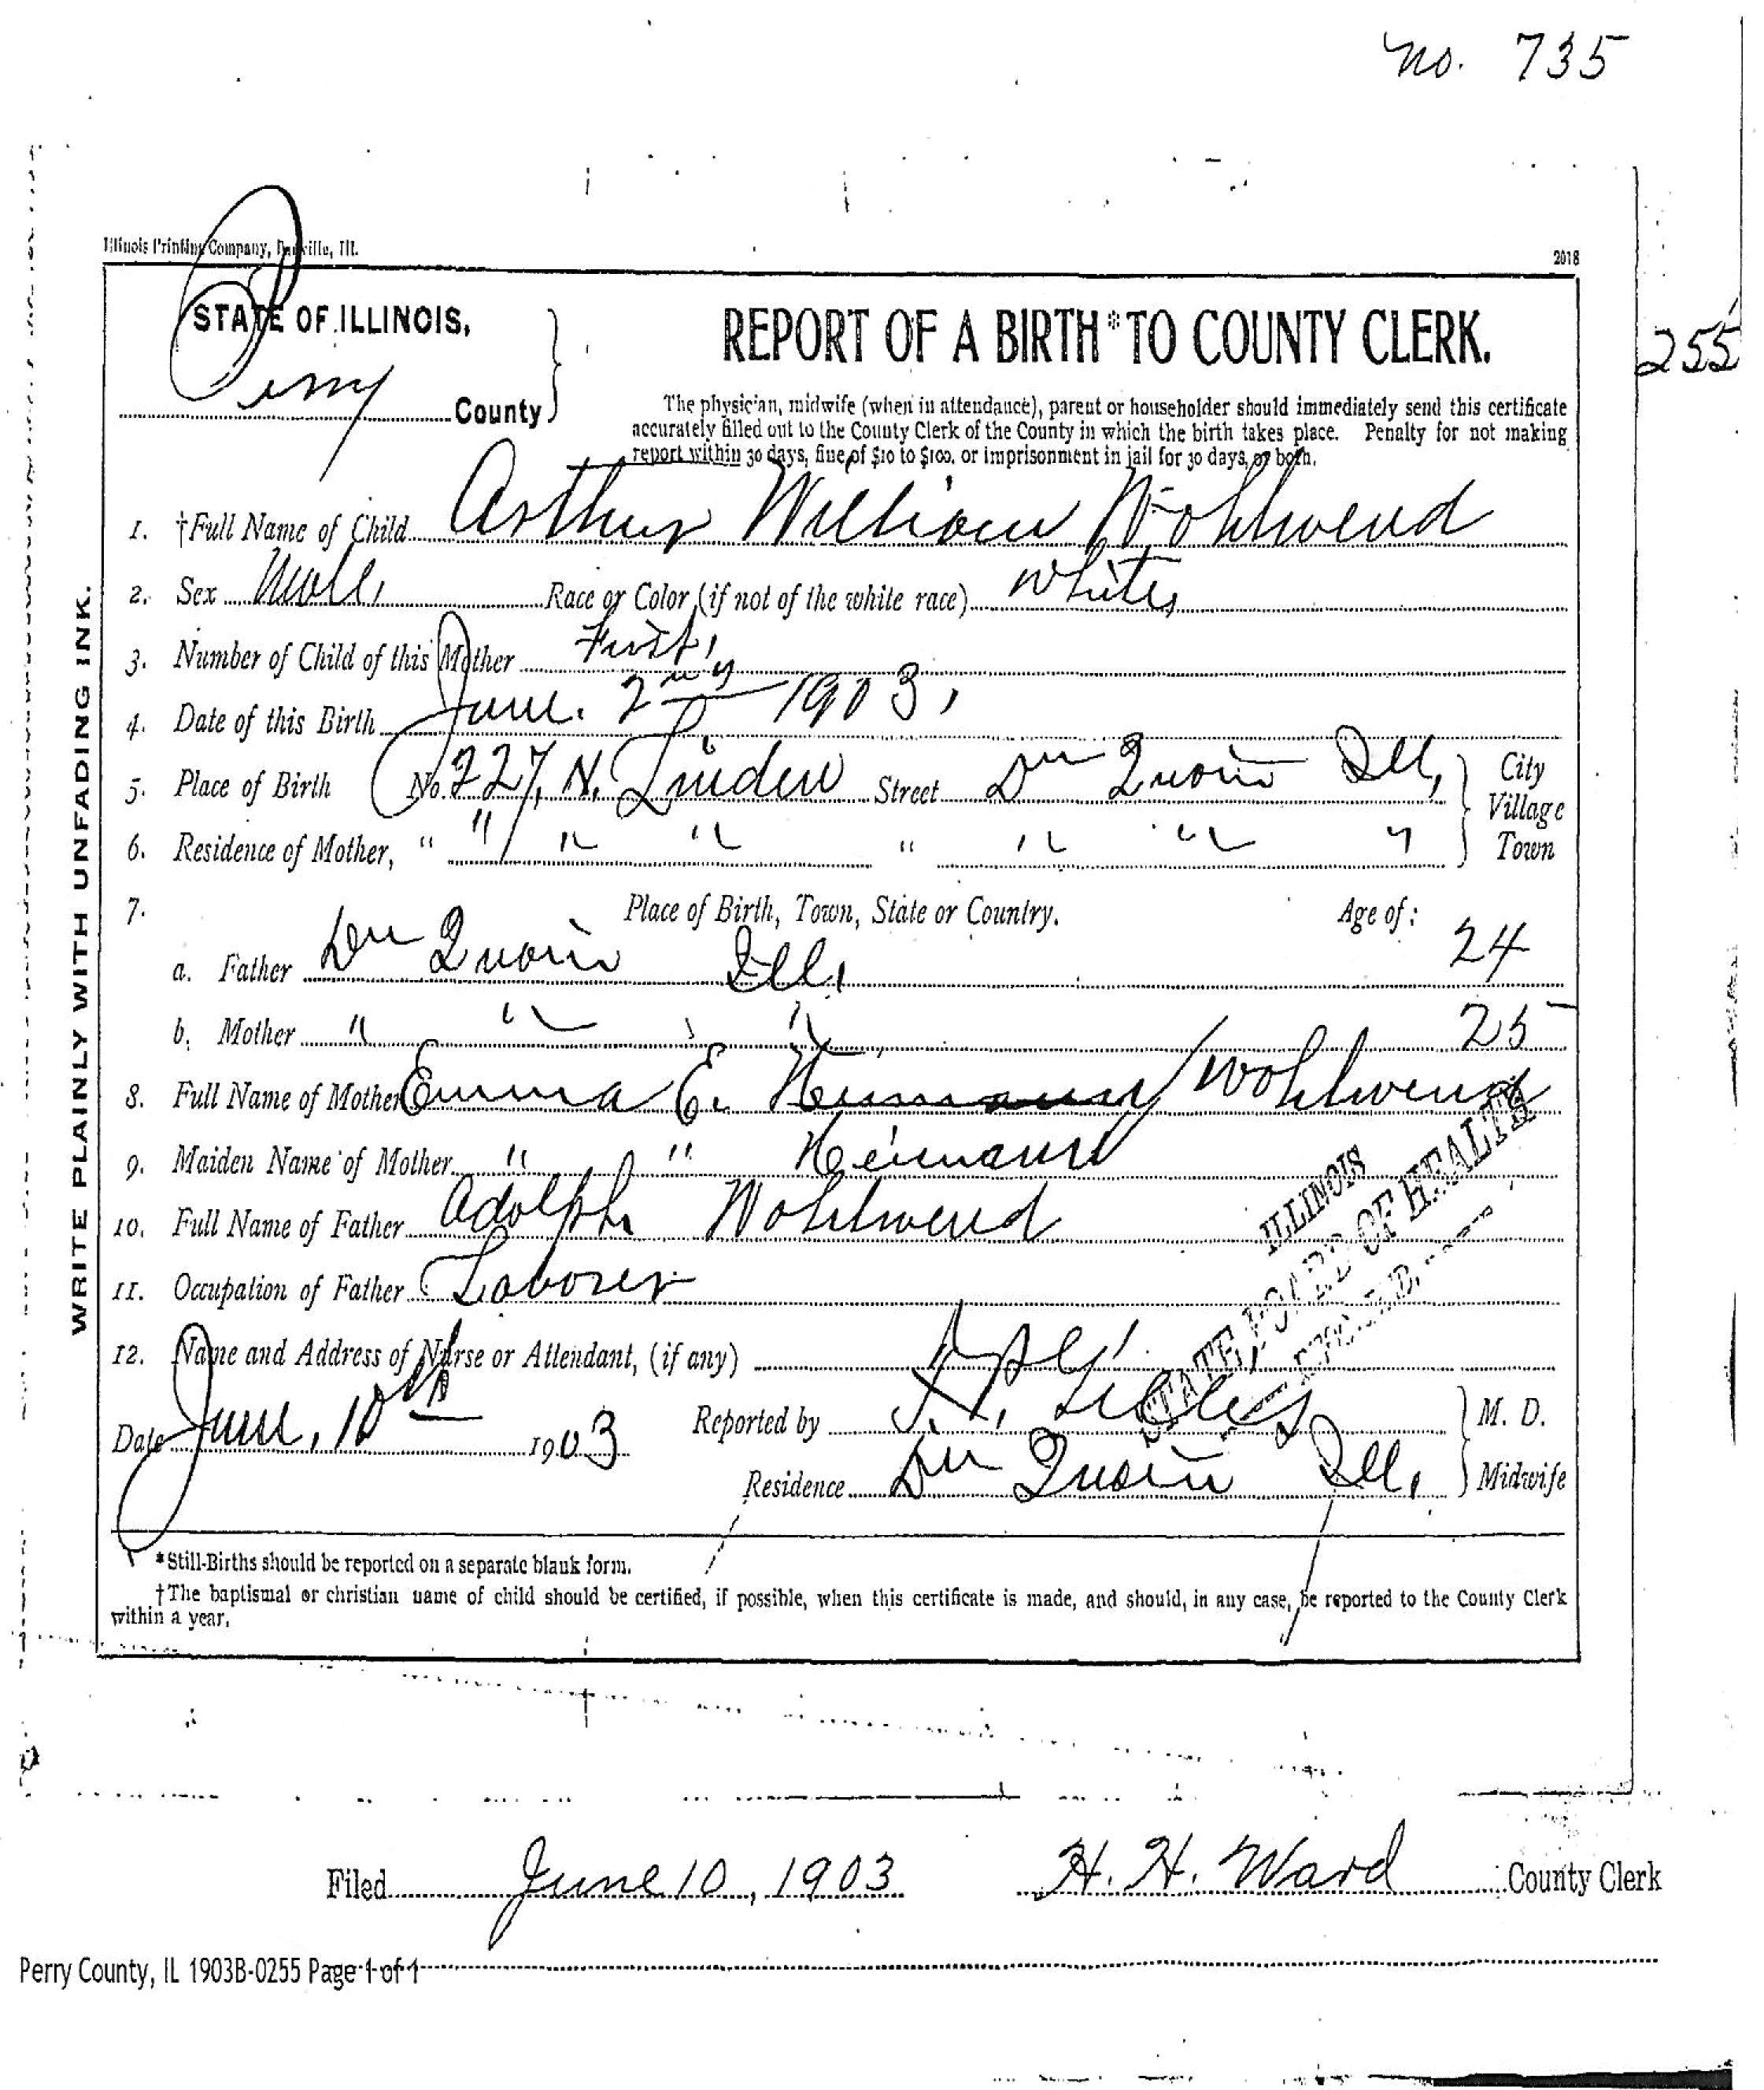 No. 735
Illinois Printing Company, Danville, Ill. 2018
STATE OF ILLINOIS,
Perry County
REPORT OF A BIRTH* TO COUNTY CLERK.
255
The physician, midwife (when in attendance), parent or householder should immediately send this certificate
accurately filled out to the County Clerk of the County in which the birth takes place. Penalty for not making
report within 30 days, fine of $10 to $100, or imprisonment in jail for 30 days, or both.
WRITE PLAINLY WITH UNFADING INK.
1. †Full Name of Child Arthur William Wohlwend
2. Sex Male, Race or Color (if not of the white race) White,
3. Number of Child of this Mother First,
4. Date of this Birth June. 2nd 1903,
5. Place of Birth No. 227, N. Linden Street Du Quoin Ill, City
Village
6. Residence of Mother, " " " " " " " " Town
7. Place of Birth, Town, State or Country. Age of:
a. Father Du Quoin Ill, 24
b. Mother " " " 25
8. Full Name of Mother Emma E. Heimann Wohlwend
9. Maiden Name of Mother " " Heimann
10. Full Name of Father Adolph Wohlwend
11. Occupation of Father Laborer
12. Name and Address of Nurse or Attendant, (if any)
ILLINOIS
STATE BOARD OF HEALTH
Date June, 10th 1903 Reported by M. D.
Residence Du Quoin Ill, Midwife
*Still-Births should be reported on a separate blank form.
†The baptismal or christian name of child should be certified, if possible, when this certificate is made, and should, in any case, be reported to the County Clerk
within a year.
Filed June 10, 1903 H. H. Ward County Clerk
Perry County, IL 1903B-0255 Page 1 of 1